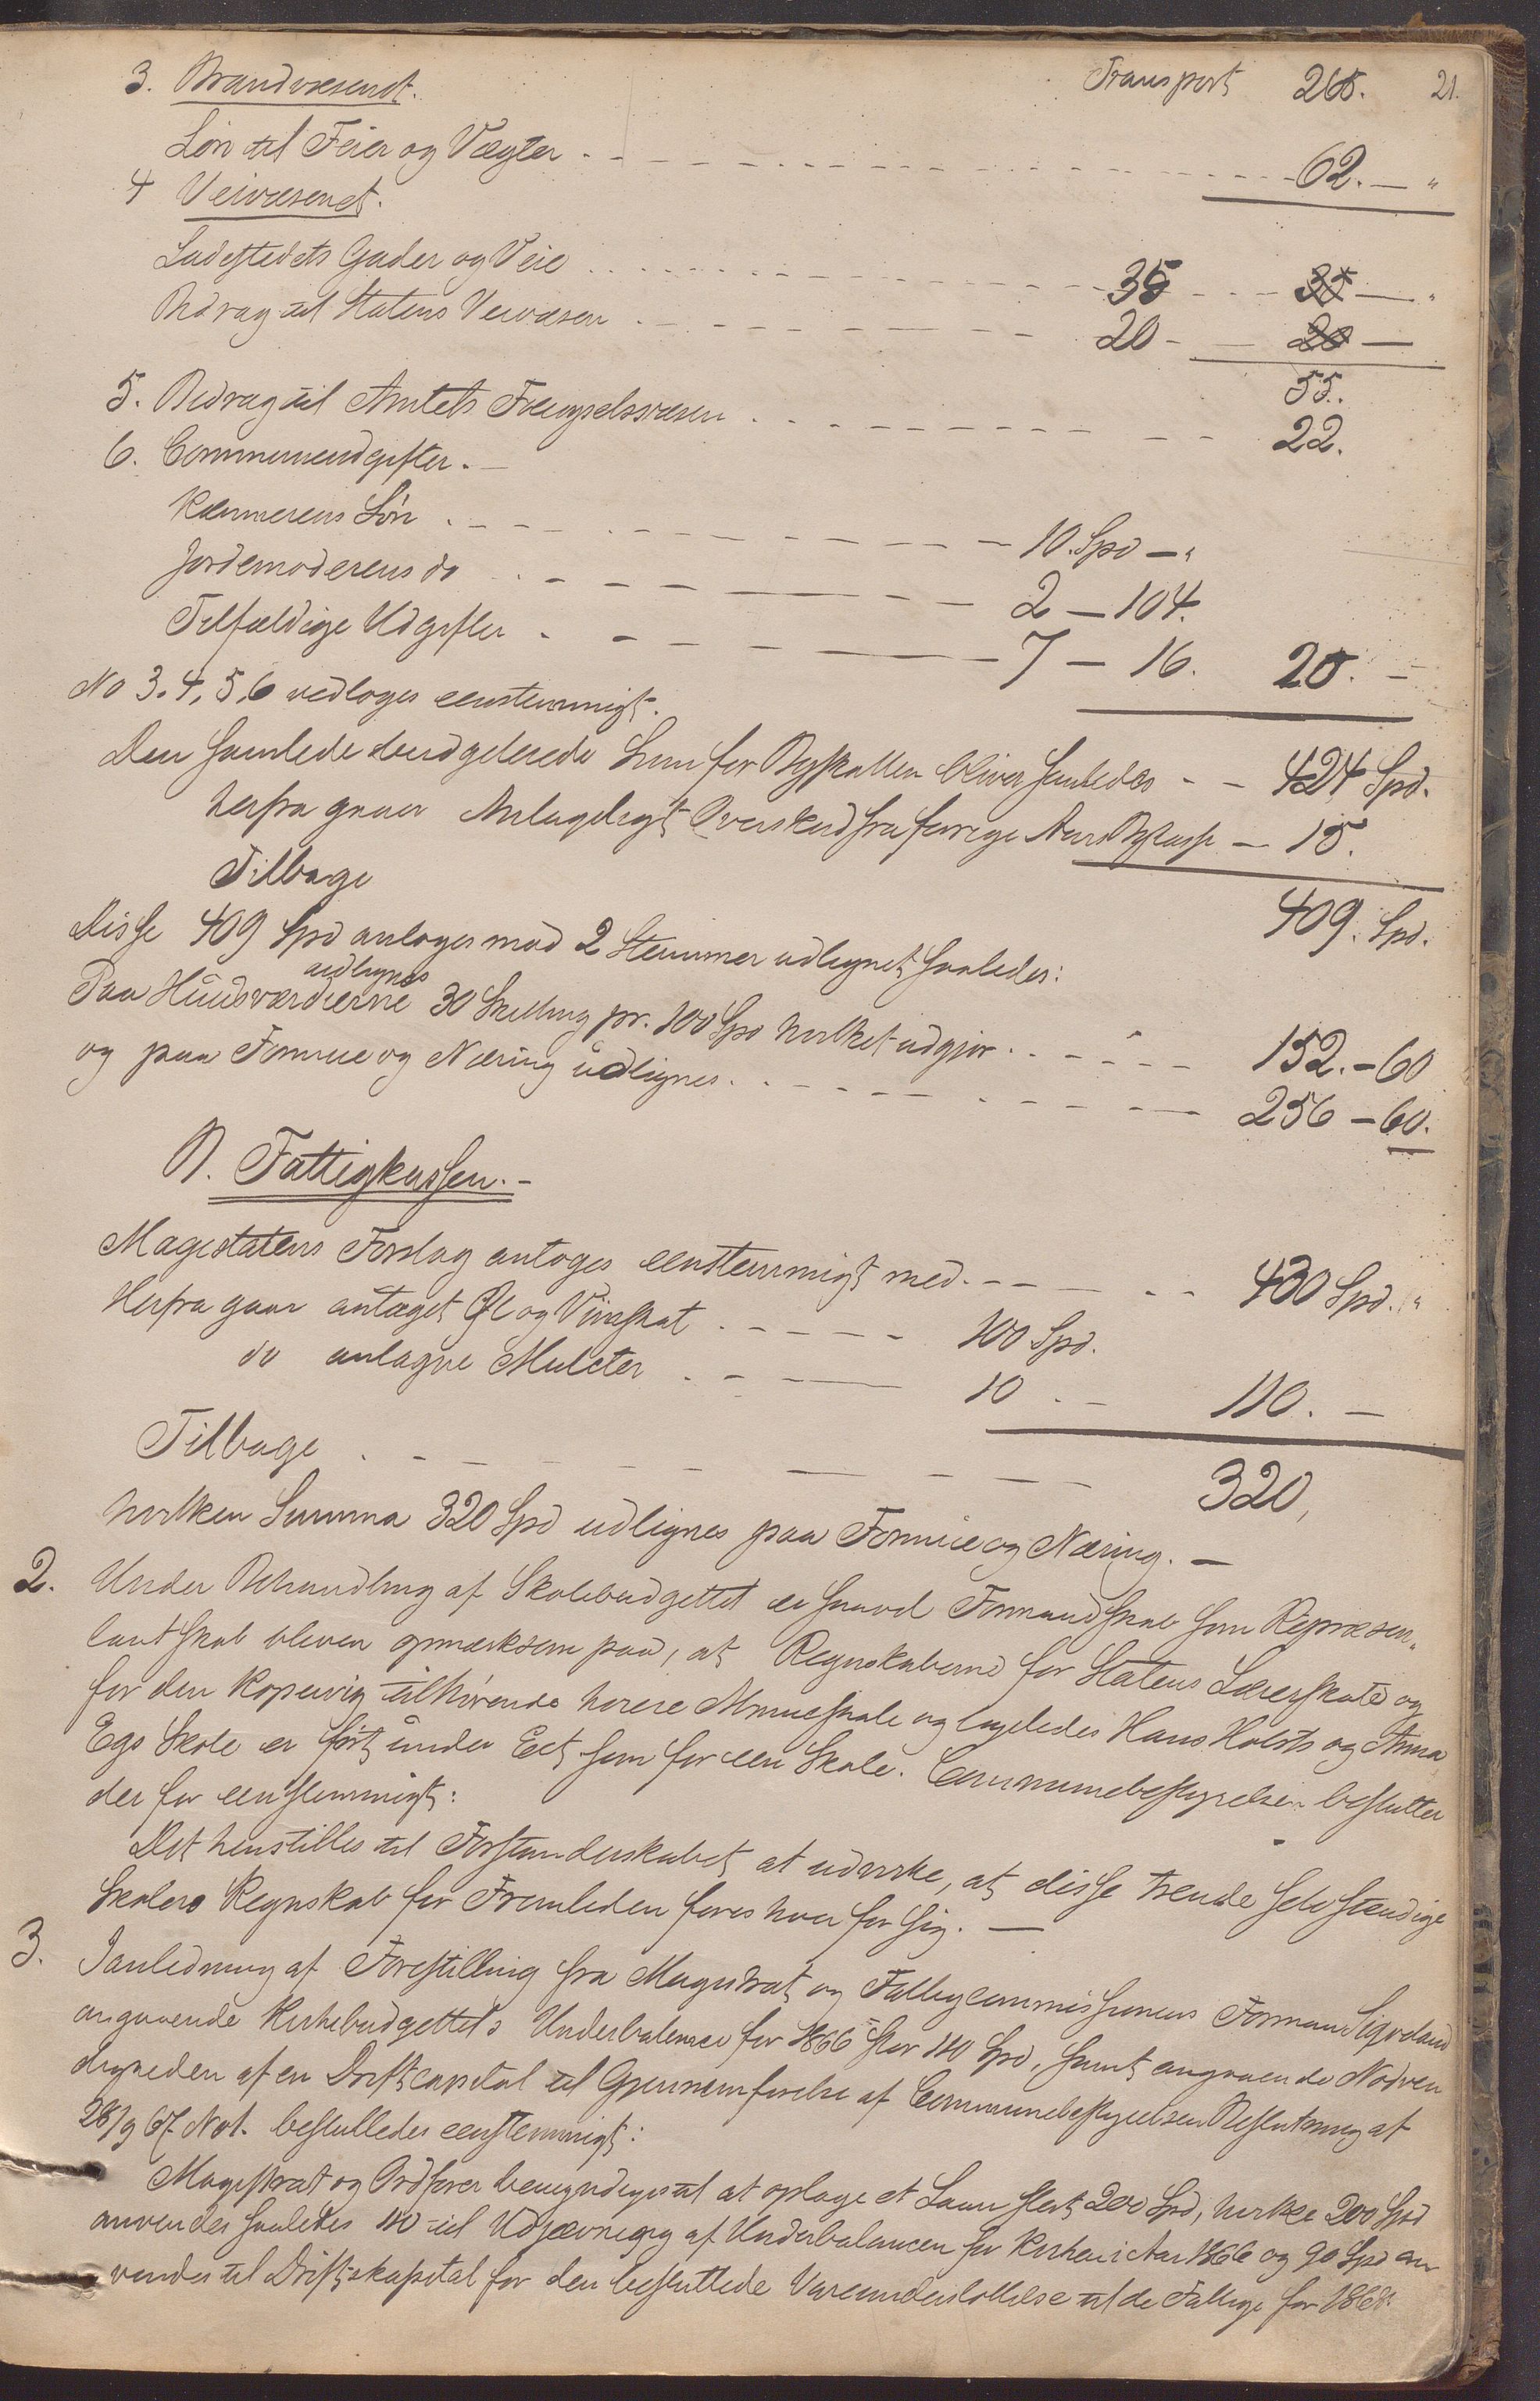 Transport 265. 21.
3. Brandvæsenet.
Løn til Feier og Vægter . - - - - 62. — "
4 Veivæsenet.
Ladestedets Gader og Veie . . . . 35 - - 35 — "
Bidrag til Statens Veivæsen . - - - 20 - — 20 —
55.
5. Bidrag til Amtets Fængselsvæsen . . - - - 22.
6. Communeudgifter. —
Kæmnerens Løn . - - - - 10. Spd — "
Jordemoderens do . - - - - 2 — 104.
Tilfældige Udgifter - - - - 7 — 16. 20. —
No 3. 4, 5, 6 vedtoges eenstemmigt.
Den samlede budgeterede Sum for Byskatten bliver saaledes - - 424 Spd.
herfra gaaer Antageligt Overskud fra forrige Aars Bykasse — 15.
Tilbage 409. Spd.
Disse 409 Spd antoges mod 2 Stemmer udlignet saaledes:
udlignes
Paa Huusværdierne 30 Skilling pr. 100 Spd hvilket udgjør . . - - - 152. - 60
og paa Formue og Næring udlignes . . - - - - 256 - 60.
B. Fattigkassen. -
Magistratens Forslag antoges eenstemmigt med. - - - - - 430 Spd. "
Herfra gaar antaget Øl og Viinskat . - - - - 100 Spd.
do antagne Mulcter . - - — 10 . - 110. —
Tilbage . - - - - - 320,
hvilken Summa 320 Spd udlignes paa Formue og Næring. —
2. Under Behandling af Skolebudgettet er saavel Formandskab som Repræsen-
tantskab bleven opmærksom paa, at Regnskaberne for Statens Lærerskole og
for den Kopervig tilhørende høiere Almueskole og ligeledes Hans Holsts og Anna
Egs Skole er ført under Eet som for een Skole. Communebestyrelsen beslutter
derfor eenstemmigt:
Det henstilles til Forstanderskabet at udvirke, at disse trende selvstændige
Skolers Regnskab for Fremtiden føres hver for sig. —
3. I anledning af Forestilling fra Magistrat og Fattigcommissionens Formand Sigvaland
angaaende Kirkebudgettets Underbalance for 1866 stor 110 Spd, samt angaaende Nødven
digheden af en Driftcapital til Gjennemførelse af Communebestyrelsens Beslutning af
28/9 67. No 1. besluttedes eenstemmigt:
Magistrat og Ordfører bemyndiges til at optage et Laan stort 200 Spd, hvilke 200 Spd
anvendes saaledes 110 til Udjævning af Underbalancen for Kirken i Aar 1866 og 90 Spd an
vendes til Driftskapital for den besluttede Vareunderstøttelse til de Fattige for 1868.